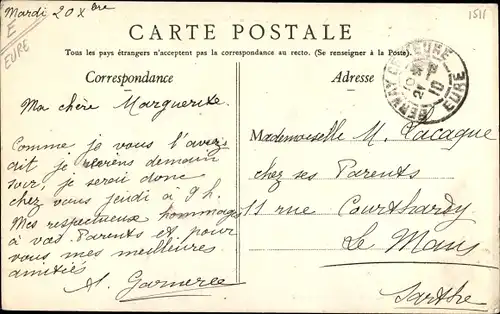 Mardi 20 Xbre
E
EURE
1511
CARTE POSTALE
Tous les pays étrangers n'acceptent pas la correspondance au recto. (Se renseigner à la Poste).
Correspondance
Adresse
EURE
10
EURE
Ma chère Marguerite
Comme je vous l'avais
dit je reviens demain
soir, je serai donc
chez vous jeudi à 9 h.
Mes respectueux hommages
à vos Parents et pour
vous mes meilleures
amitiés
Mademoiselle M. Cacaque
chez ses Parents
11 rue Courthardy
Le Mans
Sarthe